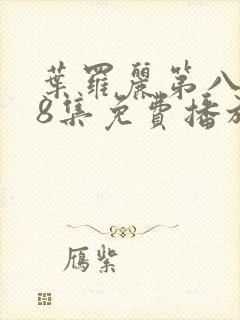 葉羅麗第八
8集免費播放
鴈紫